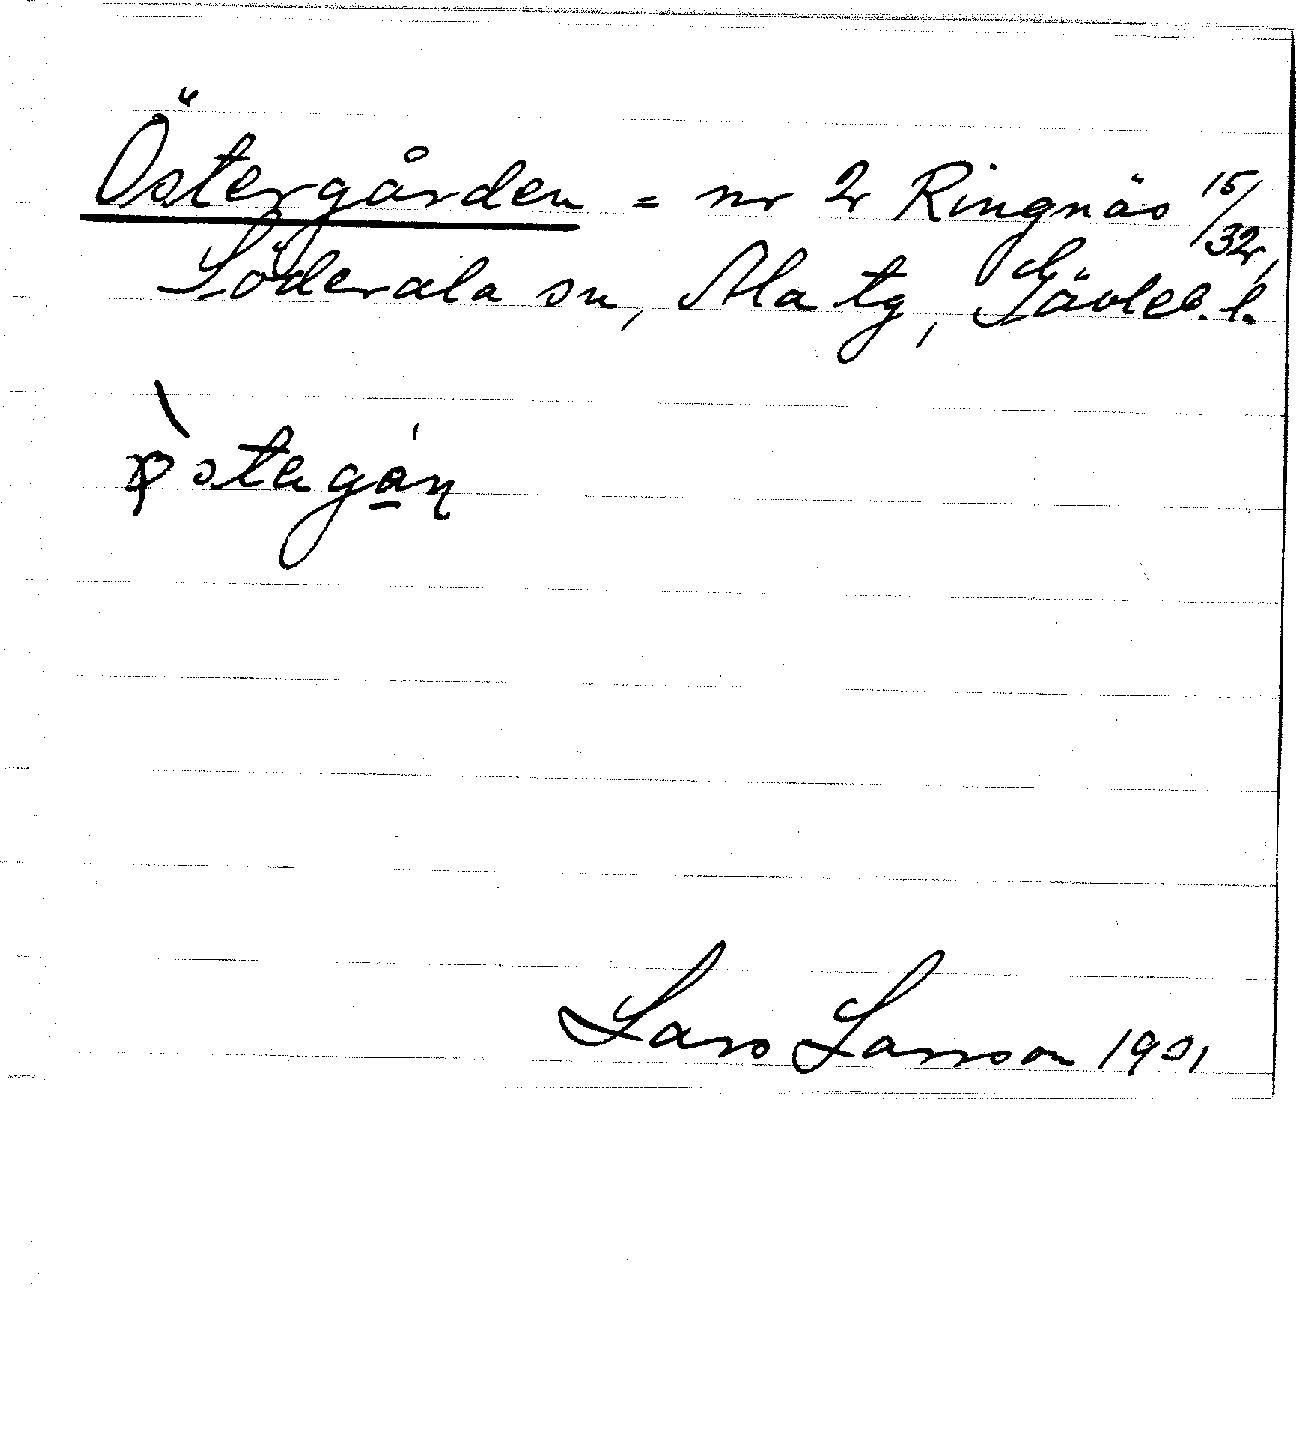 Östergården = nr 2 Ringnäs 15/32,
Söderala sn, Ala tg, Gävleb. l.
Lars Larsson 1901